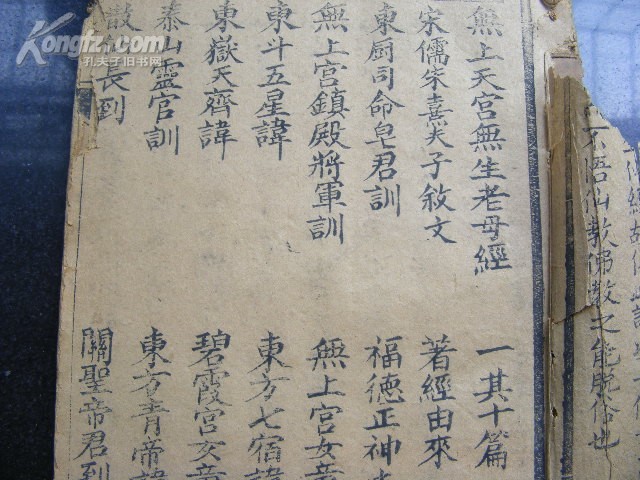 不悟仙教佛教之能脫俗也
無上天宮無生老母經 一其十篇
宋儒朱熹夫子敘文 著經由來
東厨司命皂君訓 福德正神
無上宮鎮殿將軍訓 無上宮女
東斗五星諱 東方七宿諱
東嶽天齊諱 碧霞宮女
泰山靈官訓 東方青帝諱
長到 關聖帝君到
Kongfz.com
孔夫子旧书网